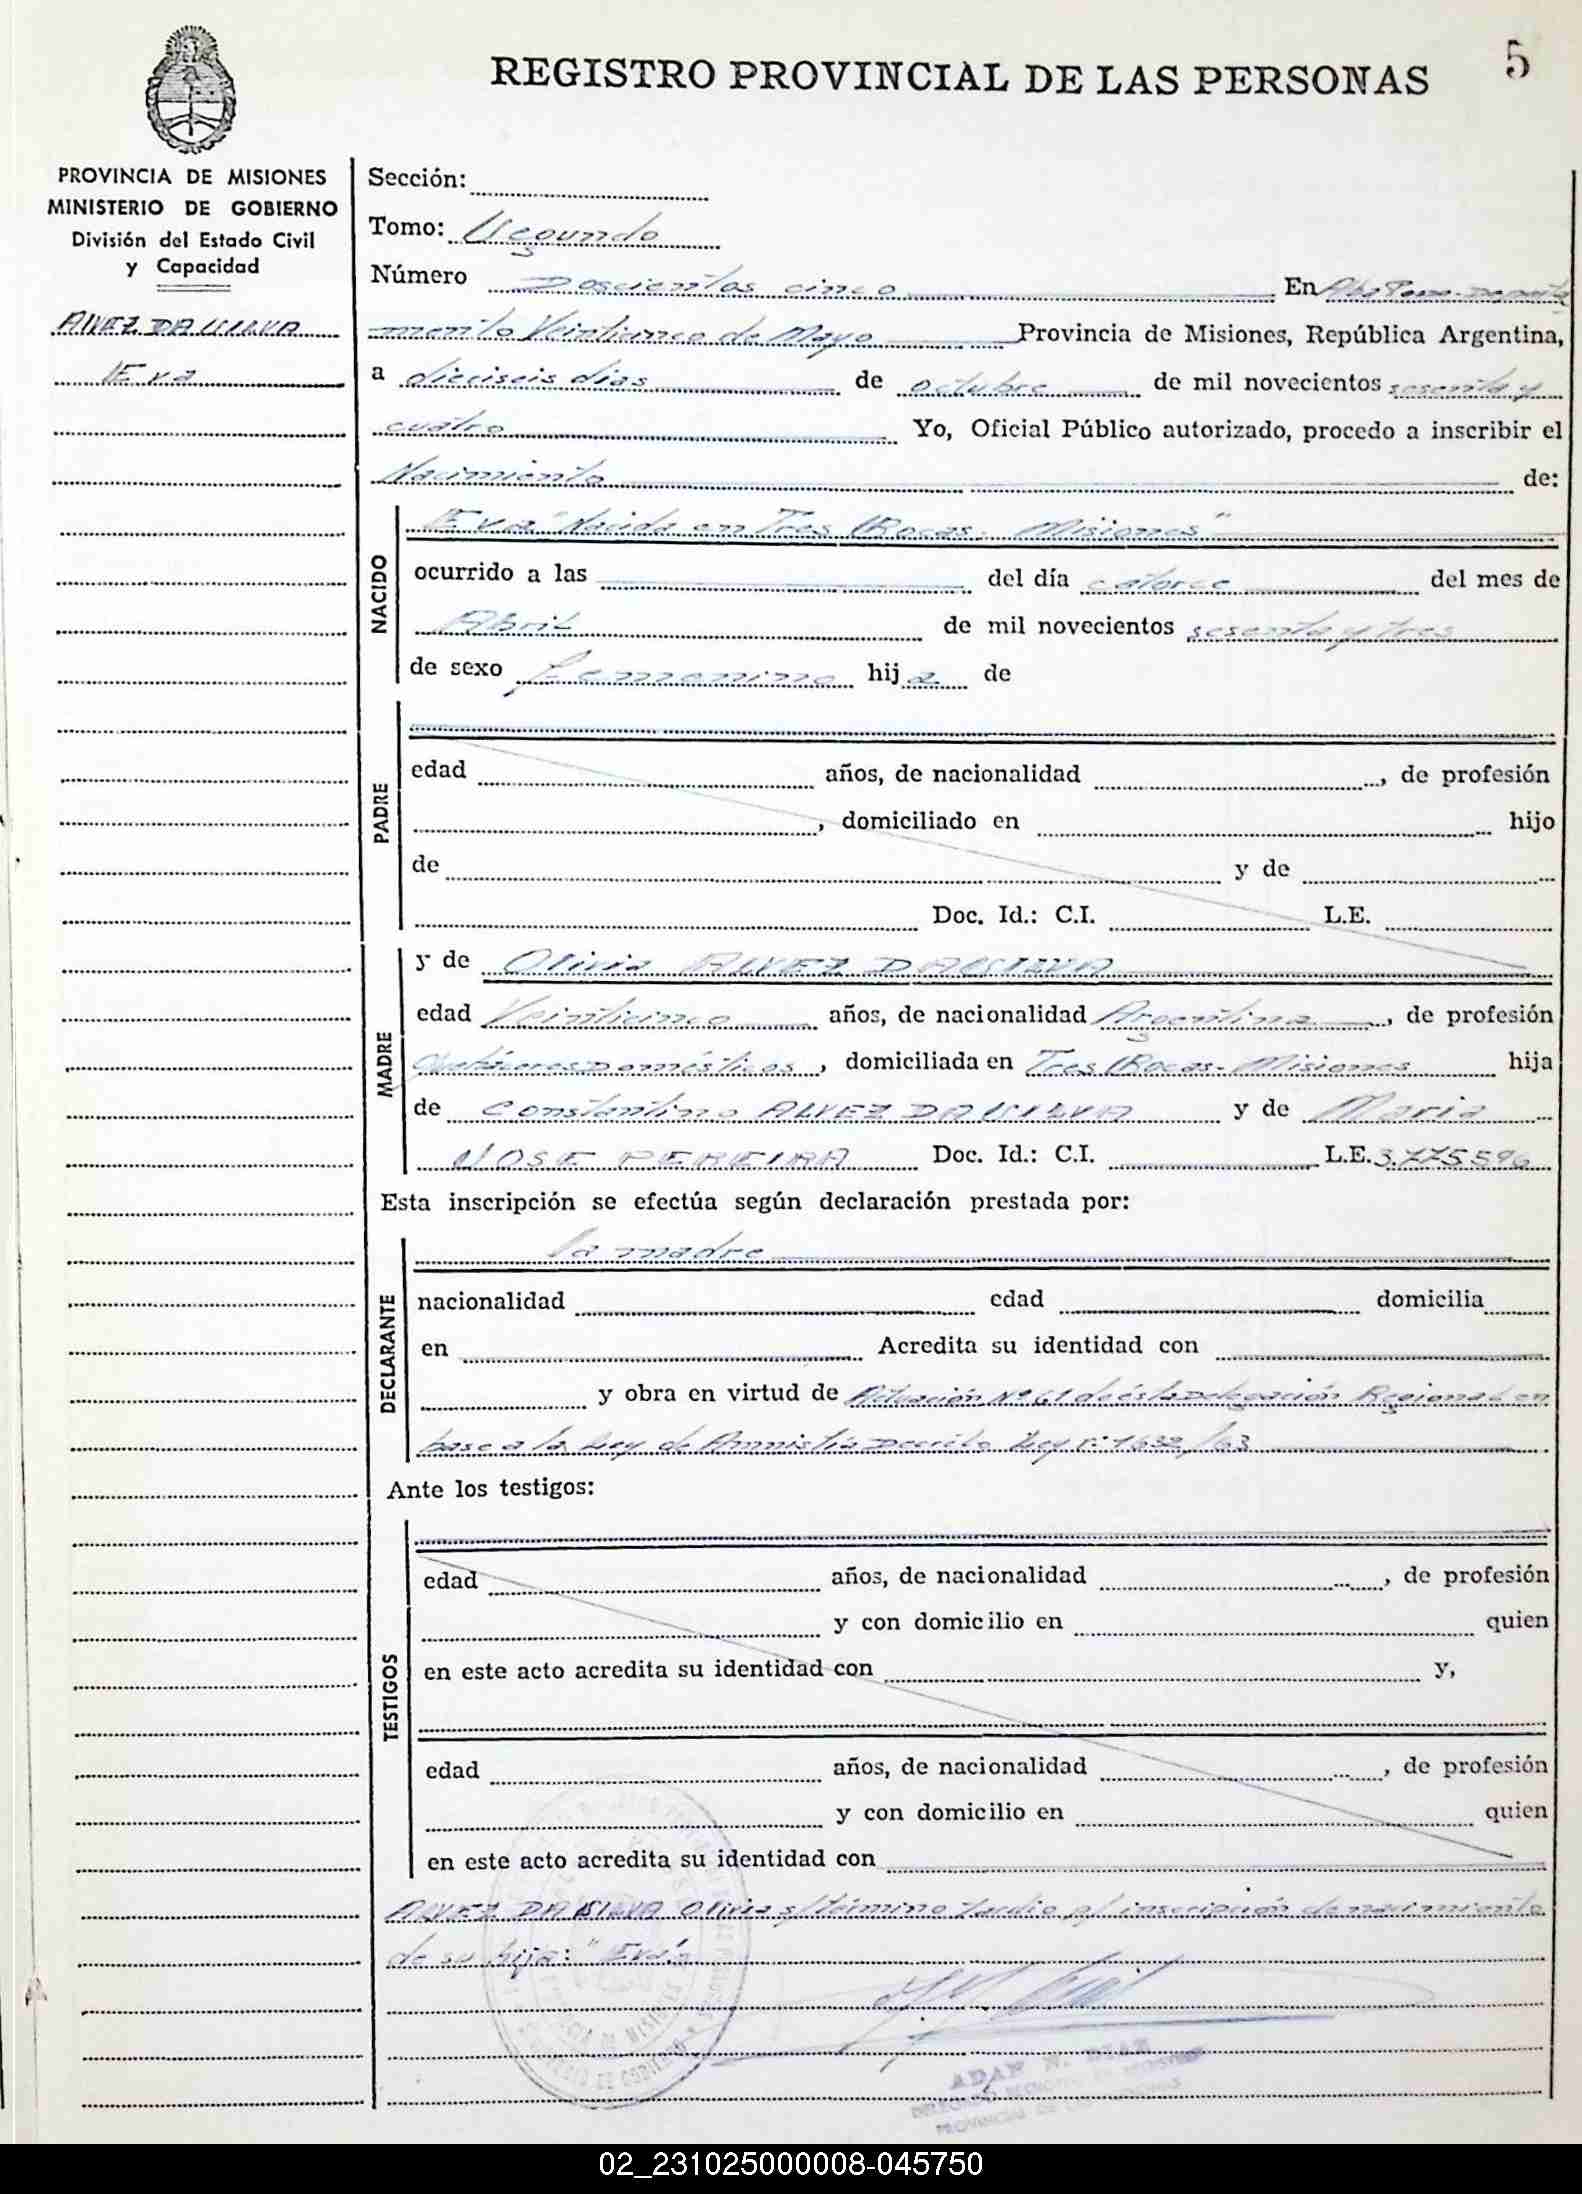 5
REGISTRO PROVINCIAL DE LAS PERSONAS
PROVINCIA DE MISIONES
MINISTERIO DE GOBIERNO
División del Estado Civil
y Capacidad
ALVEZ DA SILVA
Eva
Sección:
Tomo: Segundo
Número Doscientos cinco En Alba Posse - Departa
mento Veinticinco de Mayo Provincia de Misiones, República Argentina,
a dieciseis dias de octubre de mil novecientos sesenta y
cuatro Yo, Oficial Público autorizado, procedo a inscribir el
Nacimiento de:
NACIDO
Eva "Nacida en Tres Bocas - Misiones"
ocurrido a las del día catorce del mes de
Abril de mil novecientos sesenta y tres
de sexo femenino hija de
PADRE
edad años, de nacionalidad , de profesión
, domiciliado en hijo
de y de
Doc. Id.: C.I. L.E.
MADRE
y de Olivia ALVEZ DA SILVA
edad Veinticinco años, de nacionalidad Argentina, de profesión
Quehaceres Domésticos, domiciliada en Tres Bocas - Misiones hija
de Constantino ALVEZ DA SILVA y de Maria
JOSE PEREIRA Doc. Id.: C.I. L.E. 3.775.596
Esta inscripción se efectúa según declaración prestada por:
DECLARANTE
la madre
nacionalidad edad domicilia
en Acredita su identidad con
y obra en virtud de Actuación Nº 61 de ésta Delegación Regional en
base a la Ley de Amnistía Decreto Ley nº 1632/63
Ante los testigos:
TESTIGOS
edad años, de nacionalidad , de profesión
y con domicilio en quien
en este acto acredita su identidad con y,
edad años, de nacionalidad , de profesión
y con domicilio en quien
en este acto acredita su identidad con
ALVEZ DA SILVA Olivia s/término tardio p/ inscripción de nacimiento
de su hija: "Eva".
ADAN N.
02_231025000008-045750